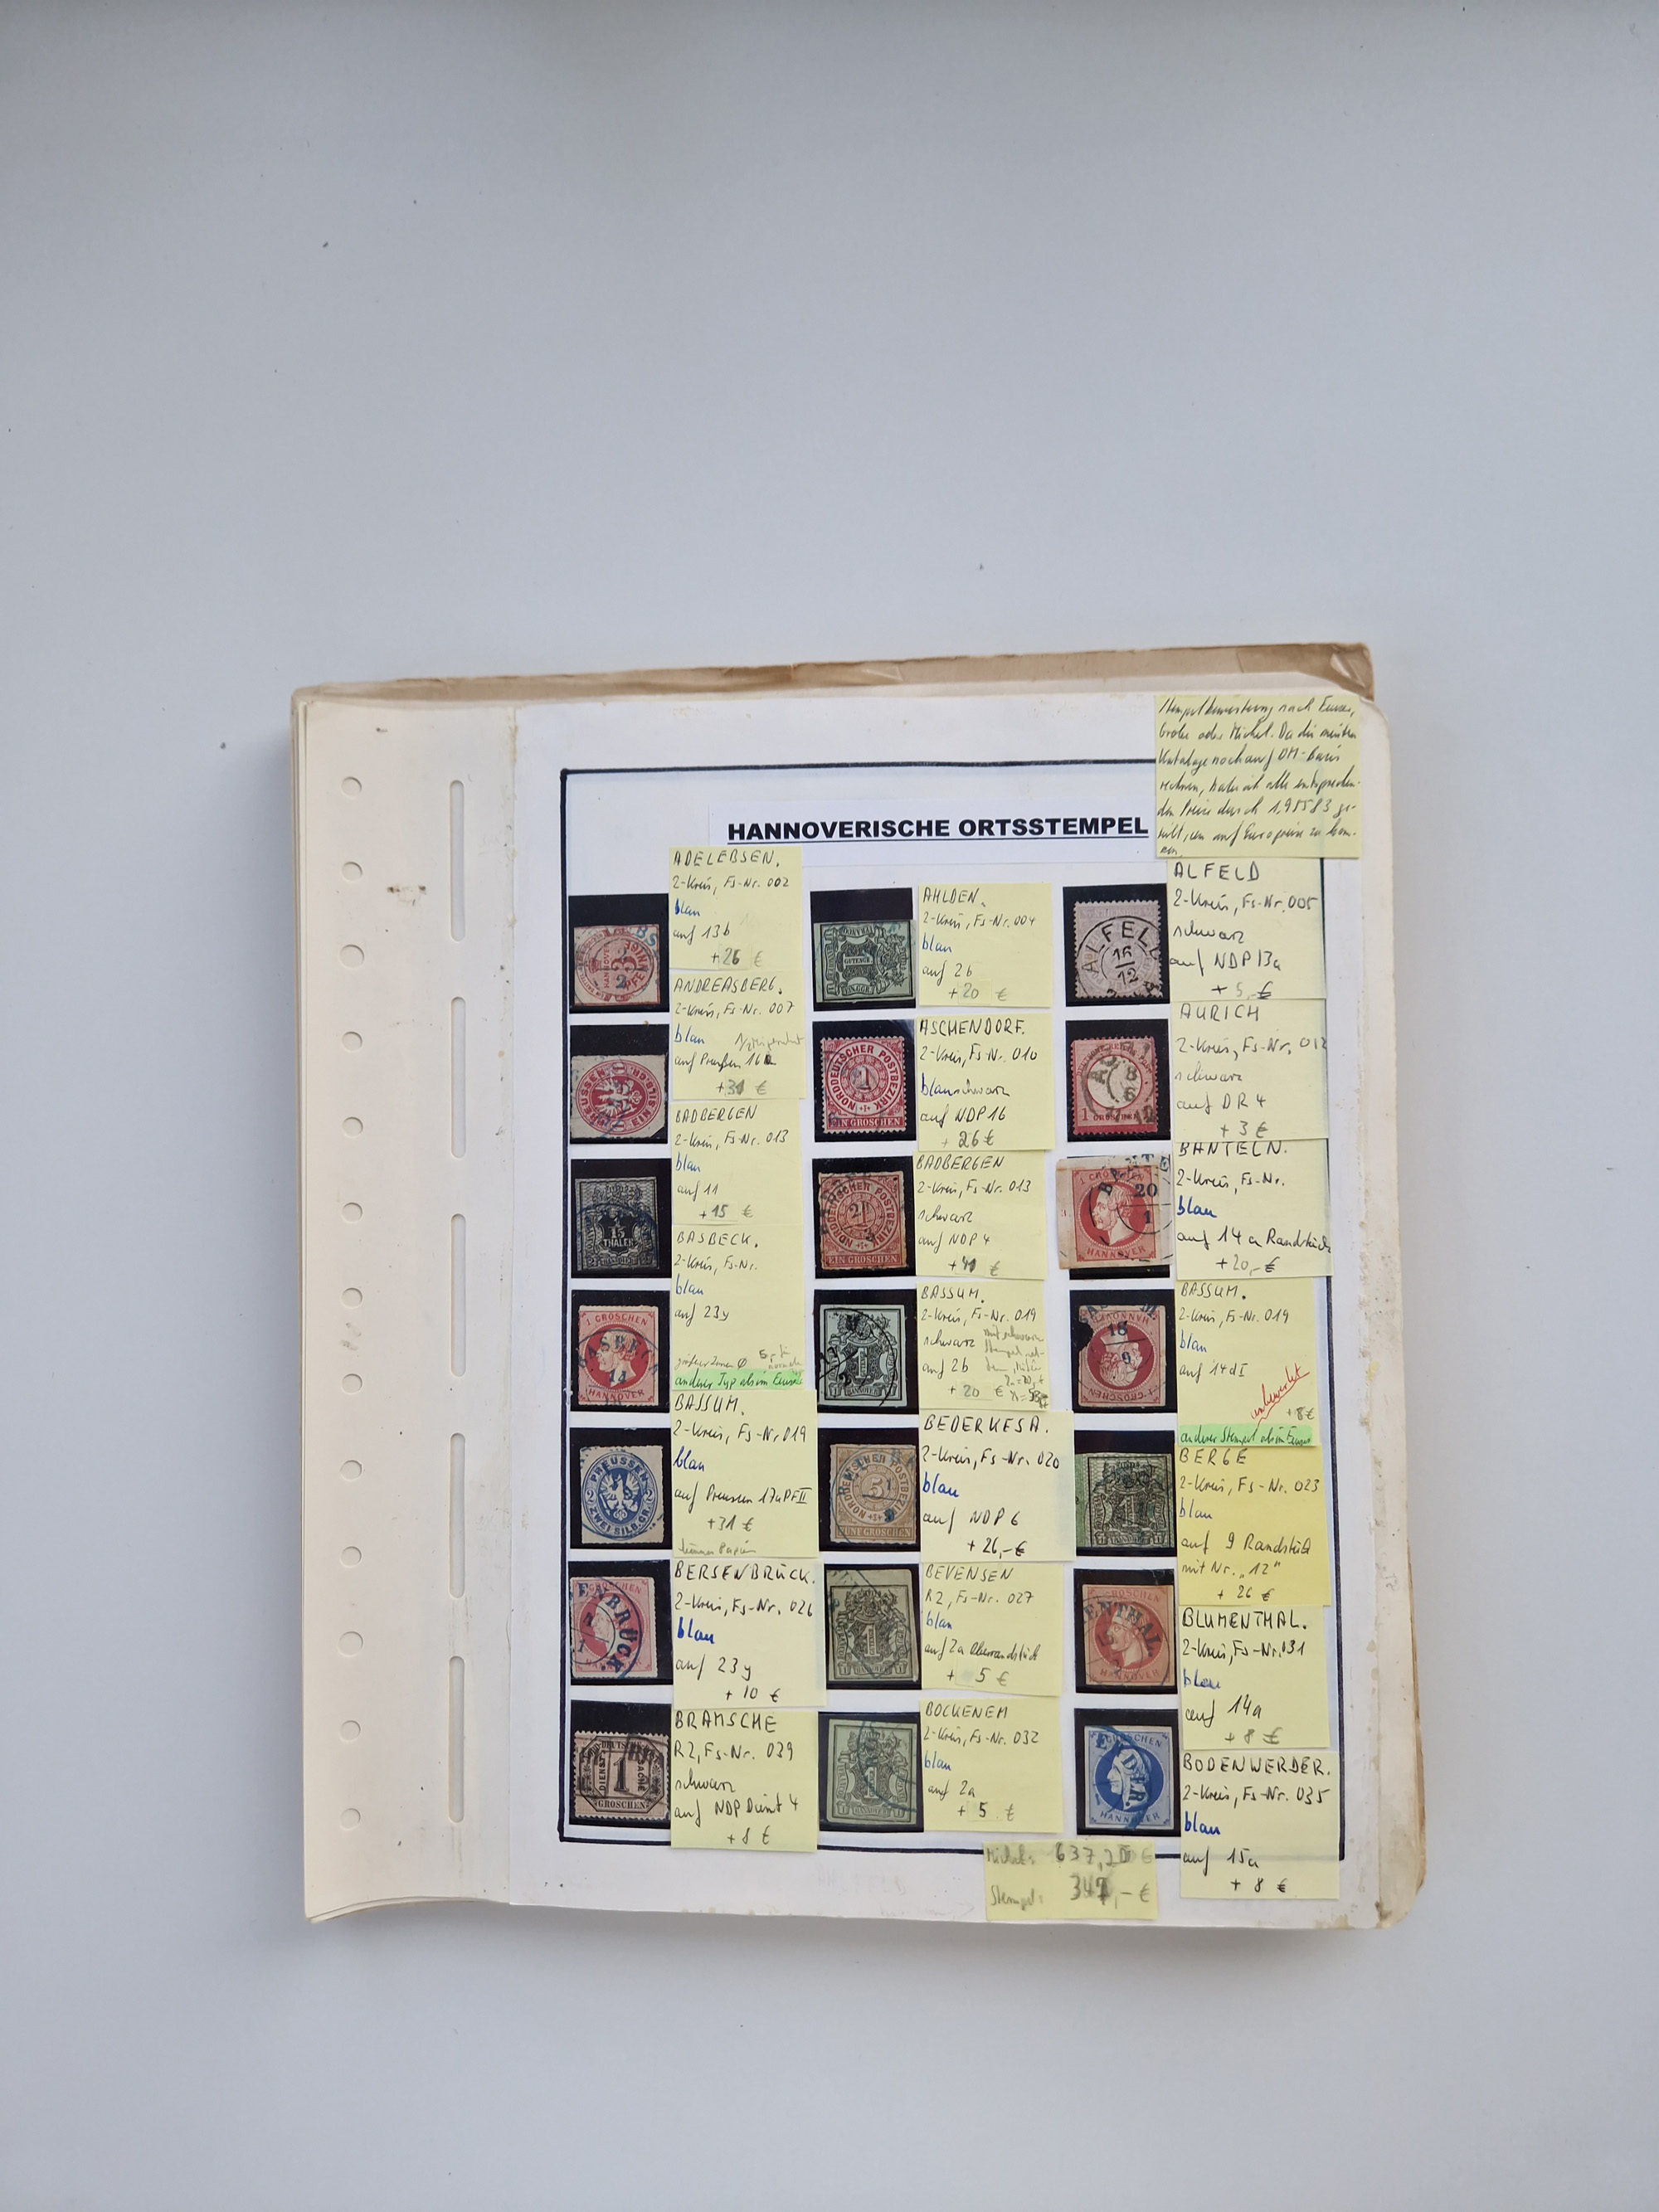 HANNOVERISCHE ORTSSTEMPEL
Stempelbewertung nach
oder Michel. Da die meisten
Kataloge noch auf DM-Basis
rechnen, habe ich alle entsprechen-
den Preise durch 1,95583 ge-
teilt, um auf Europreise zu kom-
men.
ADELEBSEN.
2-Kreis, Fs-Nr. 002
blau
auf 13b
+26 €
AHLDEN.
2-Kreis, Fs-Nr. 004
blau
auf 2b
+20 €
ALFELD
2-Kreis, Fs-Nr. 005
schwarz
auf NDP 13a
+ 5,-€
ANDREASBERG.
2-Kreis, Fs-Nr. 007
blau
auf Preußen 16a
+31 €
ASCHENDORF.
2-Kreis, Fs-Nr. 010
blauschwarz
auf NDP 16
+ 26 €
AURICH
2-Kreis, Fs-Nr. 012
schwarz
auf DR 4
+ 3 €
BADBERGEN
2-Kreis, Fs-Nr. 013
blau
auf 11
+15 €
BADBERGEN
2-Kreis, Fs-Nr. 013
schwarz
auf NDP 4
€
BANTELN.
2-Kreis, Fs-Nr.
blau
auf 14a Randstück
+20,-€
BASBECK.
2-Kreis, Fs-Nr.
blau
auf 23y
anderer Typ als im
BASSUM.
2-Kreis, Fs-Nr. 019
schwarz
auf 2b
+ 20 €
BASSUM.
2-Kreis, Fs-Nr. 019
blau
auf 14dI
unbewertet
+8€
anderer Stempel als im
BASSUM.
2-Kreis, Fs-Nr 019
blau
auf Preussen 17aPFII
+31 €
dünnes Papier
BEDERKESA.
2-Kreis, Fs-Nr. 020
blau
auf NDP 6
+ 26,-€
BERGE
2-Kreis, Fs-Nr. 023
blau
auf 9 Randstück
mit Nr. "12"
+ 26 €
BERSENBRÜCK.
2-Kreis, Fs-Nr. 026
blau
auf 23y
+ 10 €
BEVENSEN
R2, Fs-Nr. 027
blau
auf 2a Oberrandstück
+ 5 €
BLUMENTHAL.
2-Kreis, Fs-Nr. 031
blau
auf 14a
+ 8 €
BRAMSCHE
R2, Fs-Nr. 039
schwarz
auf NDP Dienst 4
+ 8 €
BOCKENEM
2-Kreis, Fs-Nr. 032
blau
auf 2a
+ 5 €
BODENWERDER.
2-Kreis, Fs-Nr. 035
blau
auf 15a
+ 8 €
Michel: 637,20 €
Stempel: 347,-€
ALFELD
16
12
NORDDEUTSCHER POSTBEZIRK
EIN GROSCHEN
15
THALER
EIN GROSCHEN
20
1
HANNOVER
1 GROSCHEN
14
HANNOVER
18
9
PREUSSEN
ZWEI SILB.GR.
FÜNF GROSCHEN
ENBRÜCK.
ENTHAL.
HANNOVER
1
GROSCHEN
HANNOVER